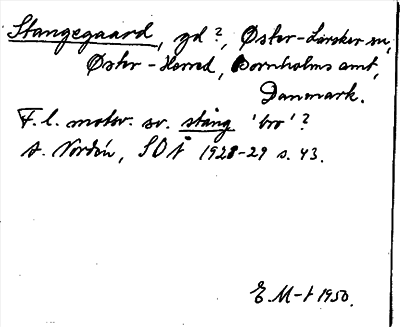 Stangegaard, gd?, Øster-Larsker sn,
Øster-Herred, Bornholms amt,
Danmark.
F.l. motsv. sv. stång 'bro'?
A. Nordén, SOÅ 1928-29 s. 43.
E M-t 1950.